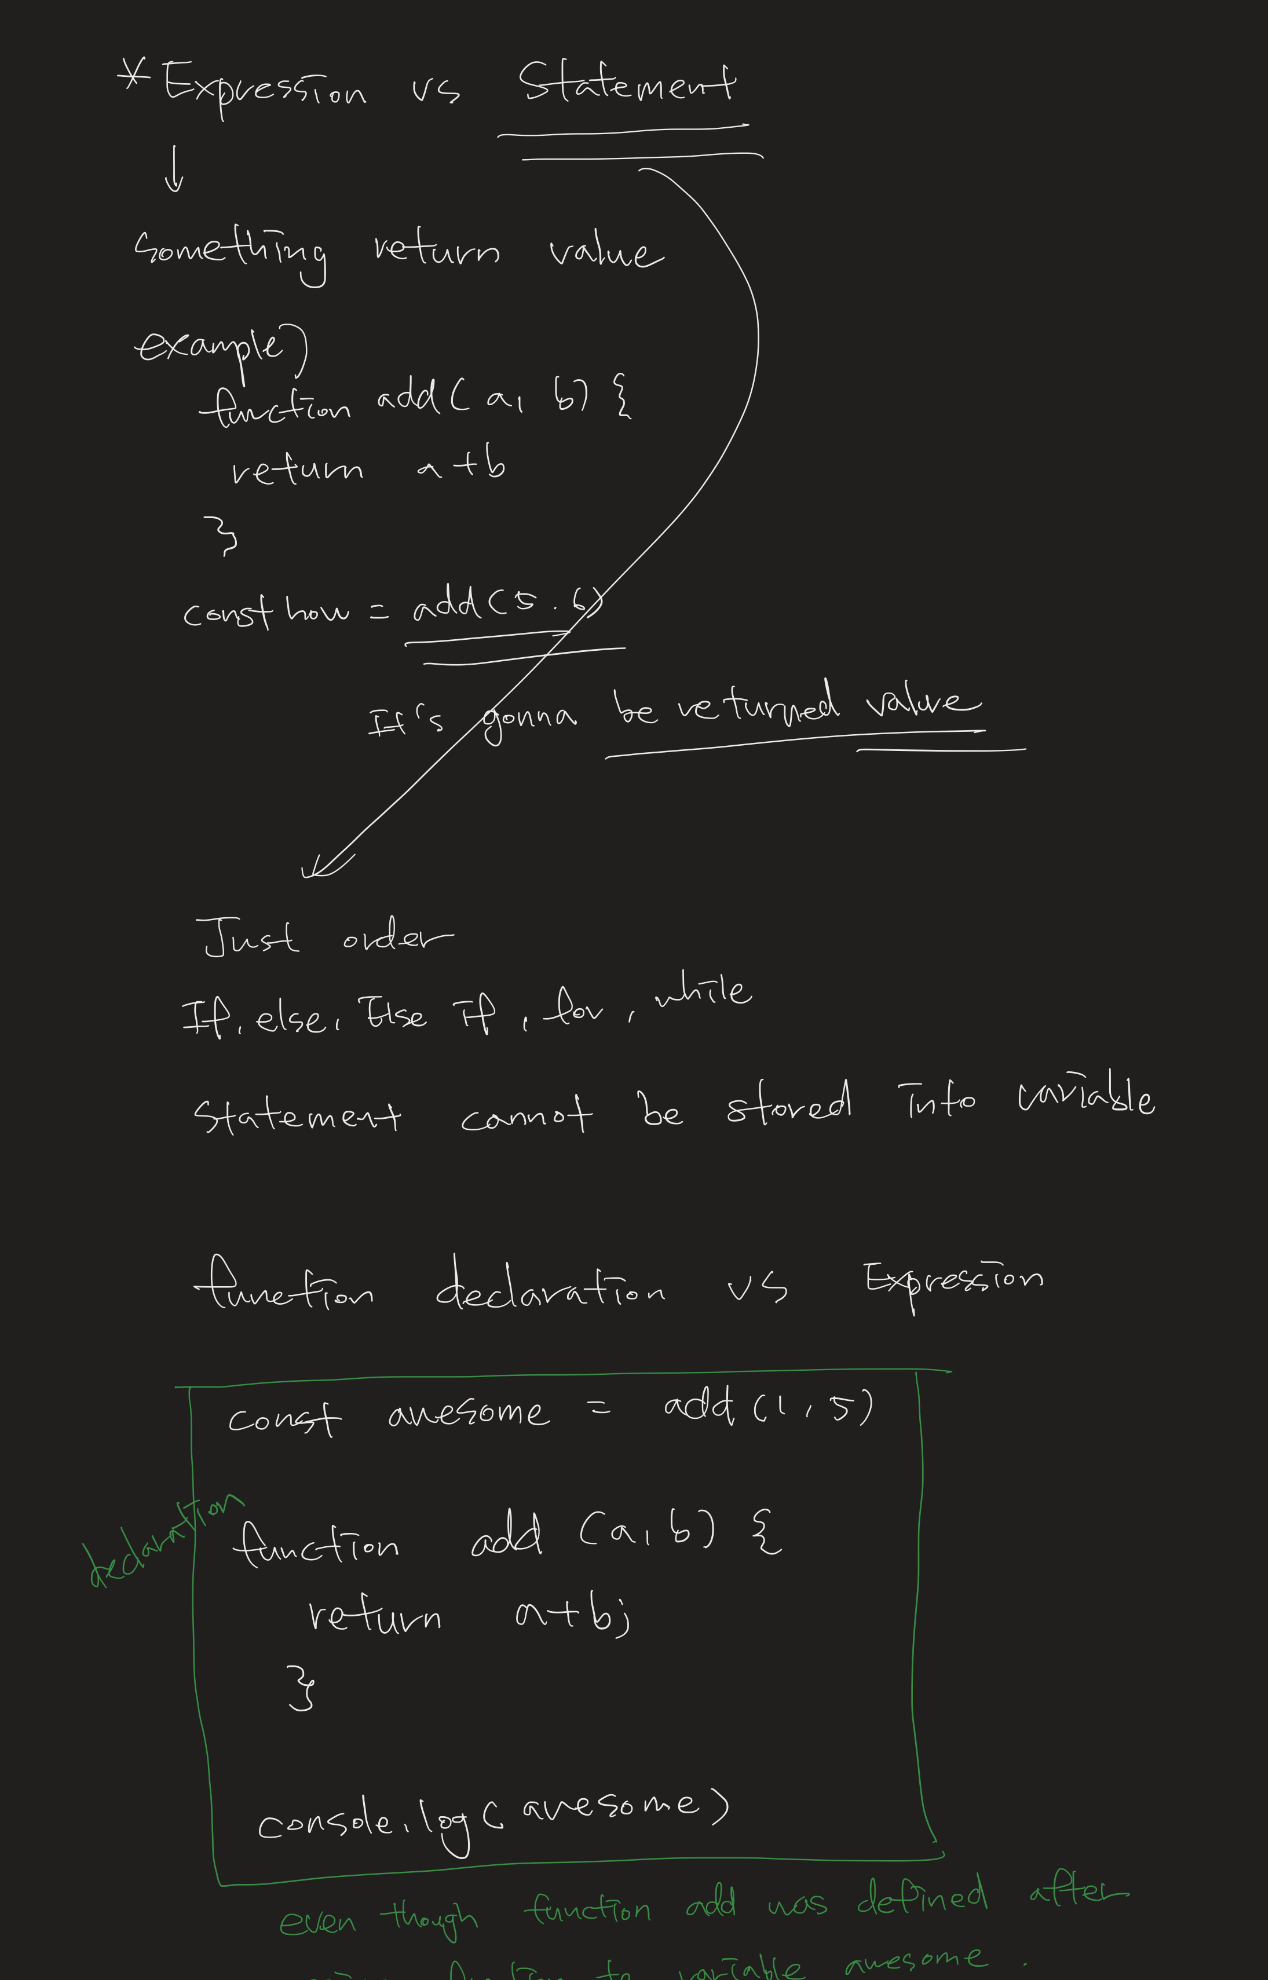 * Expression vs Statement
↓
something return value
example)
function add(a, b) {
return a+b
}
const how = add(5.6)
It's gonna be returned value
Just order
If, else, Else if, for, while
Statement cannot be stored into variable
function declaration vs Expression
const awesome = add(1,5)
declaration
function add (a, b) {
return a+b;
}
console.log(awesome)
even though function add was defined after
function to variable awesome.